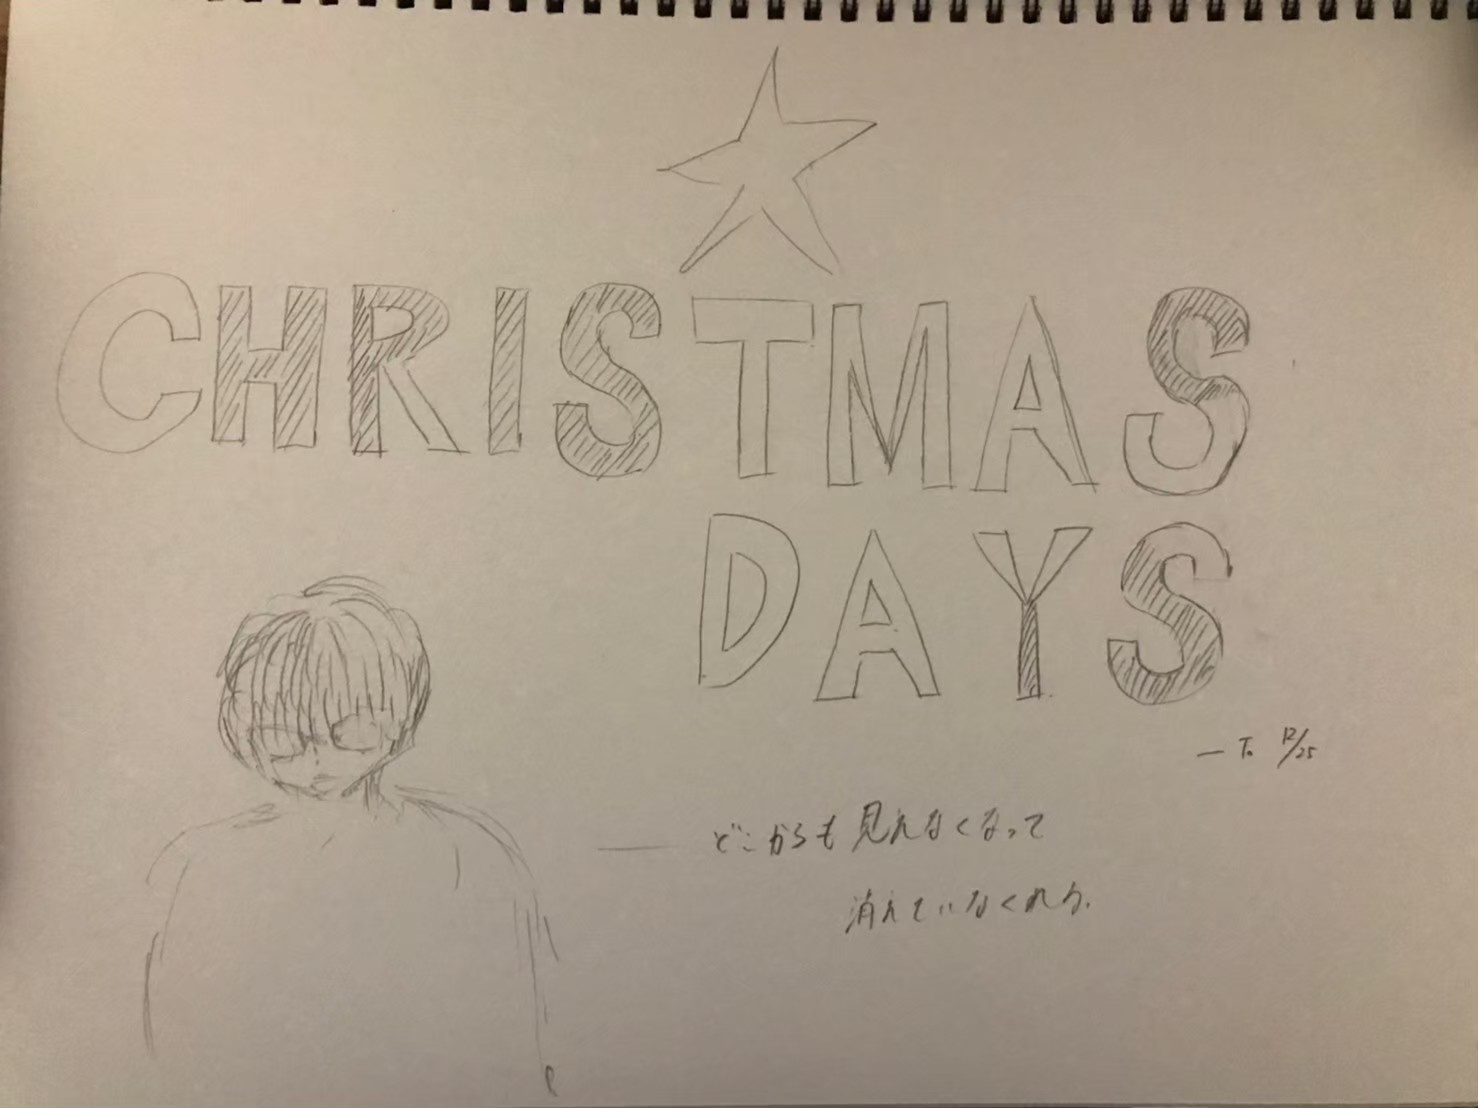 CHRISTMAS
DAYS
— To 12/25
— どこからも見えなくなって
消えていなくれる.